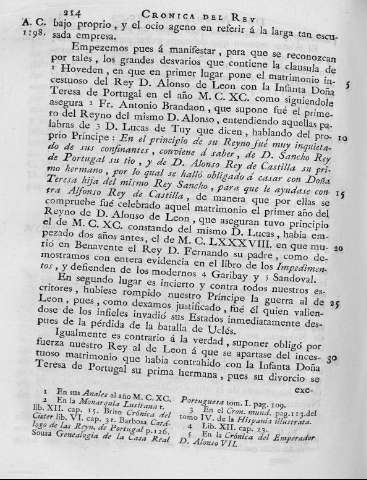 214 CRONICA DEL REY
A. C. bajo proprio, y el ocio ageno en referir á la larga tan escu-
1198. sada empresa.
Empezemos pues á manifestar, para que se reconozcan
por tales, los grandes desvarios que contiene la clausula de 5
1 Hoveden, en que en primer lugar pone el matrimonio in-
cestuoso del Rey D. Alonso de Leon con la Infanta Doña
Teresa de Portugal en el año M. C. XC. como siguiendole
asegura 2 Fr. Antonio Brandaon, que supone fué el prime-
ro del Reyno del mismo D. Alonso, entendiendo aquellas pa-
labras de 3 D. Lucas de Tuy que dicen, hablando del pro- 10
prio Príncipe: En el principio de su Reyno fué muy inquieta-
do de sus confinantes, conviene á saber, de D. Sancho Rey
de Portugal su tio, y de D. Alonso Rey de Castilla su pri-
mo hermano, por lo qual se halló obligado á casar con Doña
Teresa hija del mismo Rey Sancho, para que le ayudase con-
tra Alfonso Rey de Castilla, de manera que por ellas se 15
compruebe fué celebrado aquel matrimonio el primer año del
Reyno de D. Alonso de Leon, que aseguran tuvo principio
el de M. C. XC. constando del mismo D. Lucas, habia em-
pezado dos años antes, el de M. C. LXXXVIII. en que mu-
rió en Benavente el Rey D. Fernando su padre, como de- 20
mostramos con entera evidencia en el libro de los Impedimen-
tos, y defienden de los modernos 4 Garibay y 5 Sandoval.
En segundo lugar es incierto y contra todos nuestros es-
critores, hubiese rompido nuestro Príncipe la guerra al de
Leon, pues, como dexamos justificado, fué él quien valien- 25
dose de los infieles invadió sus Estados inmediatamente des-
pues de la pérdida de la batalla de Uclés.
Igualmente es contrario á la verdad, suponer obligó por
fuerza nuestro Rey al de Leon á que se apartase del inces-
tuoso matrimonio que habia contrahido con la Infanta Doña 30
Teresa de Portugal su prima hermana, pues su divorcio se
exe-
1 En sus Anales el año M. C. XC.
2 En la Monarquia Lusitana t.
lib. XII. cap. 15. Brito Crónica del
Cister lib. VI. cap. 31. Barbosa Catá-
logo de las Reyn. de Portugal p. 126.
Sousa Genealogia de la Casa Real
Portuguera tom. I. pag. 109.
3 En el Cron. mund. pag. 113. del
tomo IV. de la Hispania illustrata.
4 Lib. XII. cap. 23.
5 En la Crónica del Emperador
D. Alonso VII.